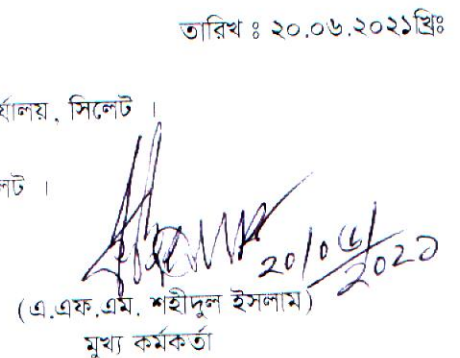 তারিখ ঃ ২০.০৬.২০২১খ্রিঃ
র্যালয়, সিলেট ।
লেট ।
২০/০৬/২০২১
(এ.এফ.এম. শহীদুল ইসলাম)
মুখ্য কর্মকর্তা